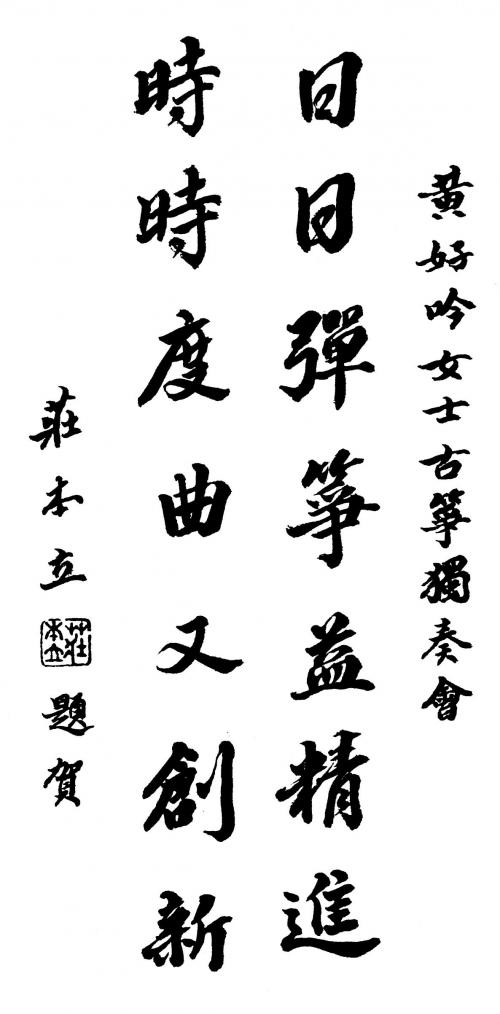 黃好吟女士古箏獨奏會
日日彈箏益精進
時時度曲又創新
莊本立
莊本立
題賀